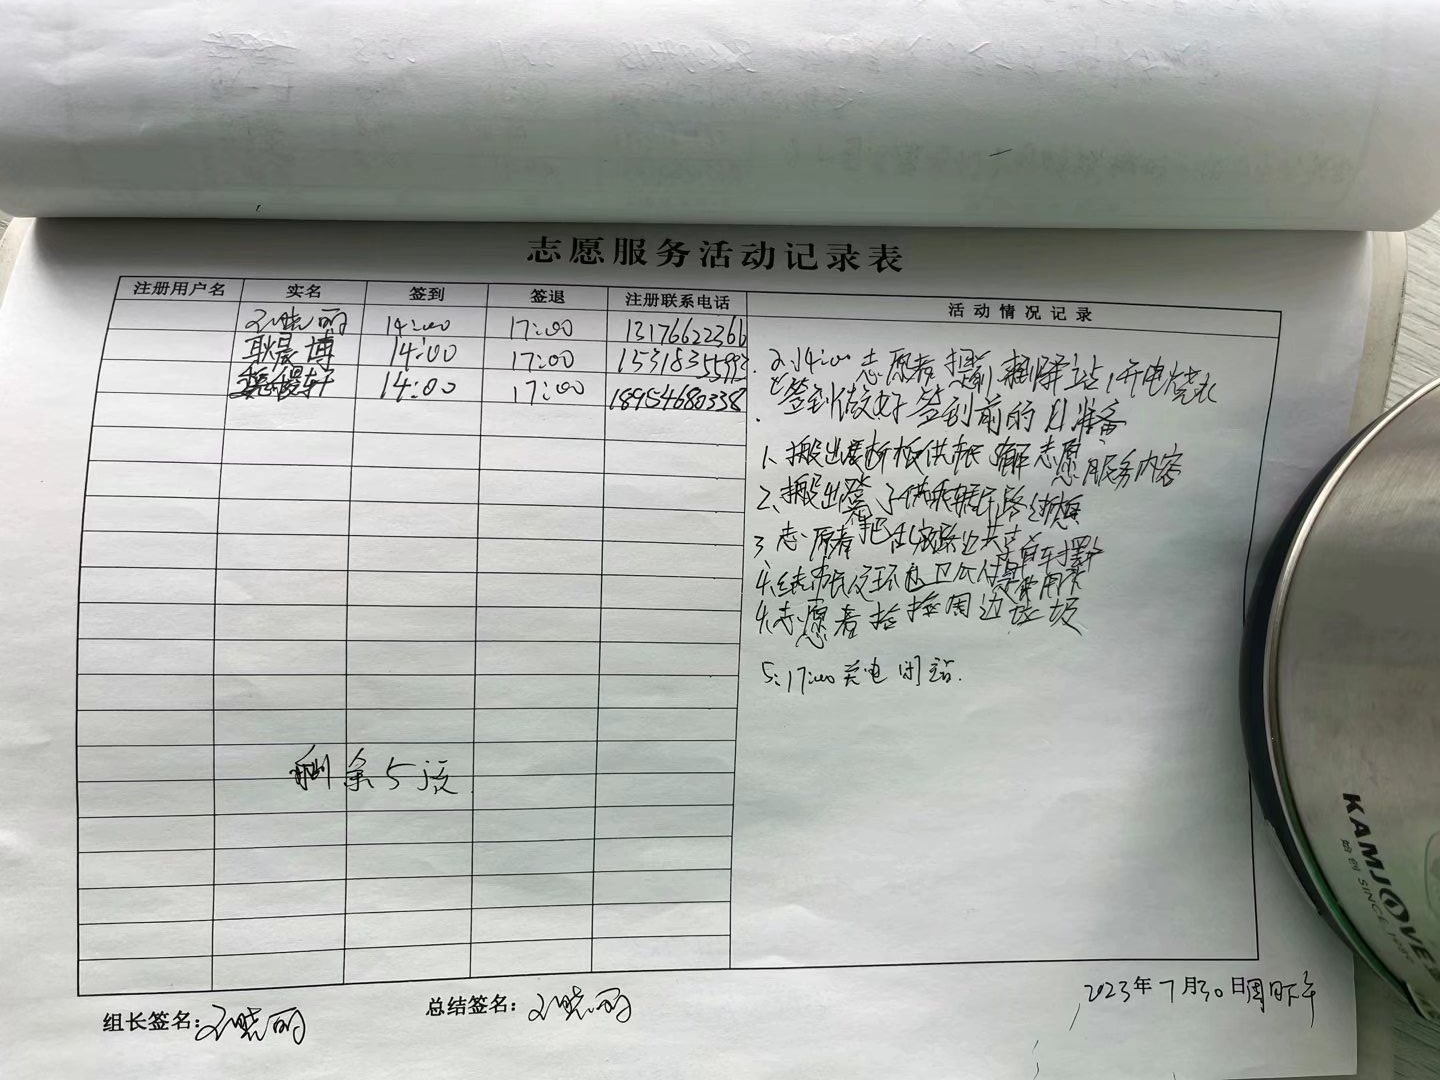 志愿服务活动记录表
注册用户名 实名 签到 签退 注册联系电话 活动情况记录
晓丽 14:00 17:00 13176622366
耿晨博 14:00 17:00 15318355993
轩 14:00 17:00 18954680338
14:00 志愿者提前 站,开电烧水
签到做好签到前的 准备
1、搬出展板供市民了解志愿服务内容
2、搬出凳子供
3、志愿者把 路边共享单车摆
4、给市民及环卫
4、志愿者捡拾周边垃圾
5:17:00关电闭站.
剩余5
组长签名: 晓丽
总结签名: 晓丽
2023年7月30日周日下午
KAMJOVE
SINCE